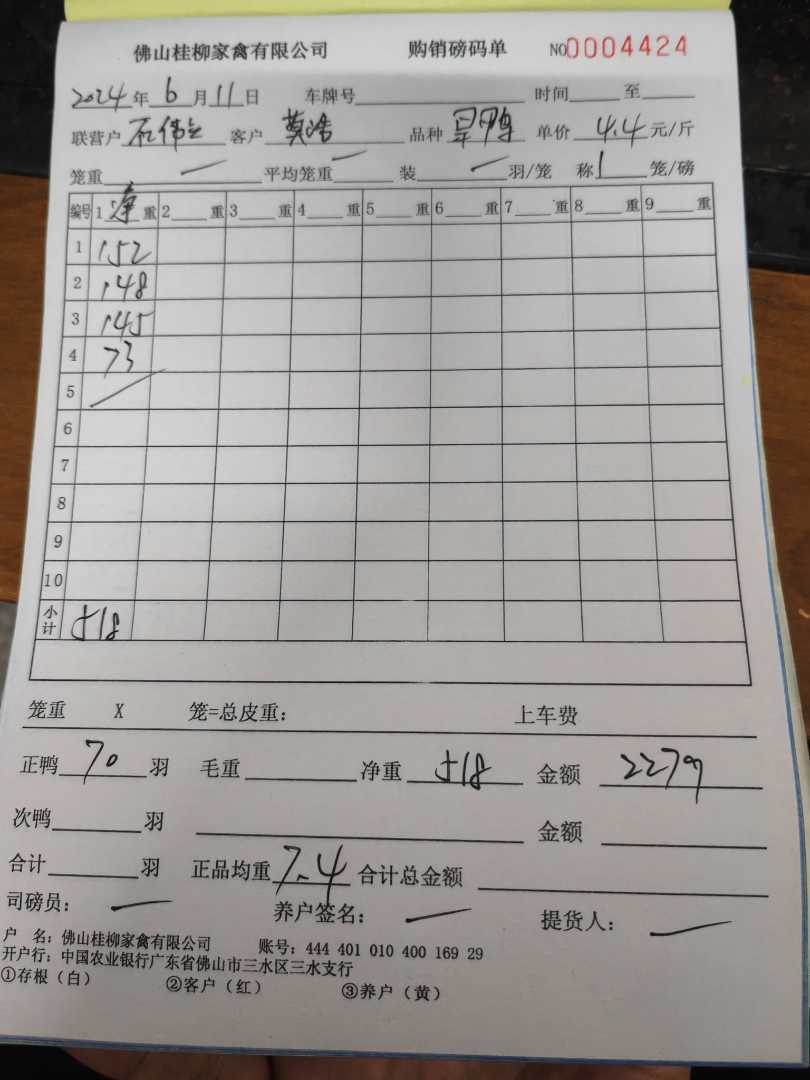 佛山桂柳家禽有限公司 购销磅码单 NO0004424
2024年6月11日 车牌号 时间 至
联营户 石伟 客户 莫浩 品种 旱鸭 单价 4.4 元/斤
笼重 — 平均笼重 — 装 — 羽/笼 称 1 笼/磅
编号 1 净 重 2 重 3 重 4 重 5 重 6 重 7 重 8 重 9 重
1 152
2 148
3 145
4 73
5
6
7
8
9
10
小计 518
笼重 X 笼=总皮重： 上车费
正鸭 70 羽 毛重 净重 518 金额 2279
次鸭 羽 金额
合计 羽 正品均重 7.4 合计总金额
司磅员： — 养户签名： — 提货人： —
户 名：佛山桂柳家禽有限公司 账号：444 401 010 400 169 29
开户行：中国农业银行广东省佛山市三水区三水支行
①存根（白） ②客户（红） ③养户（黄）